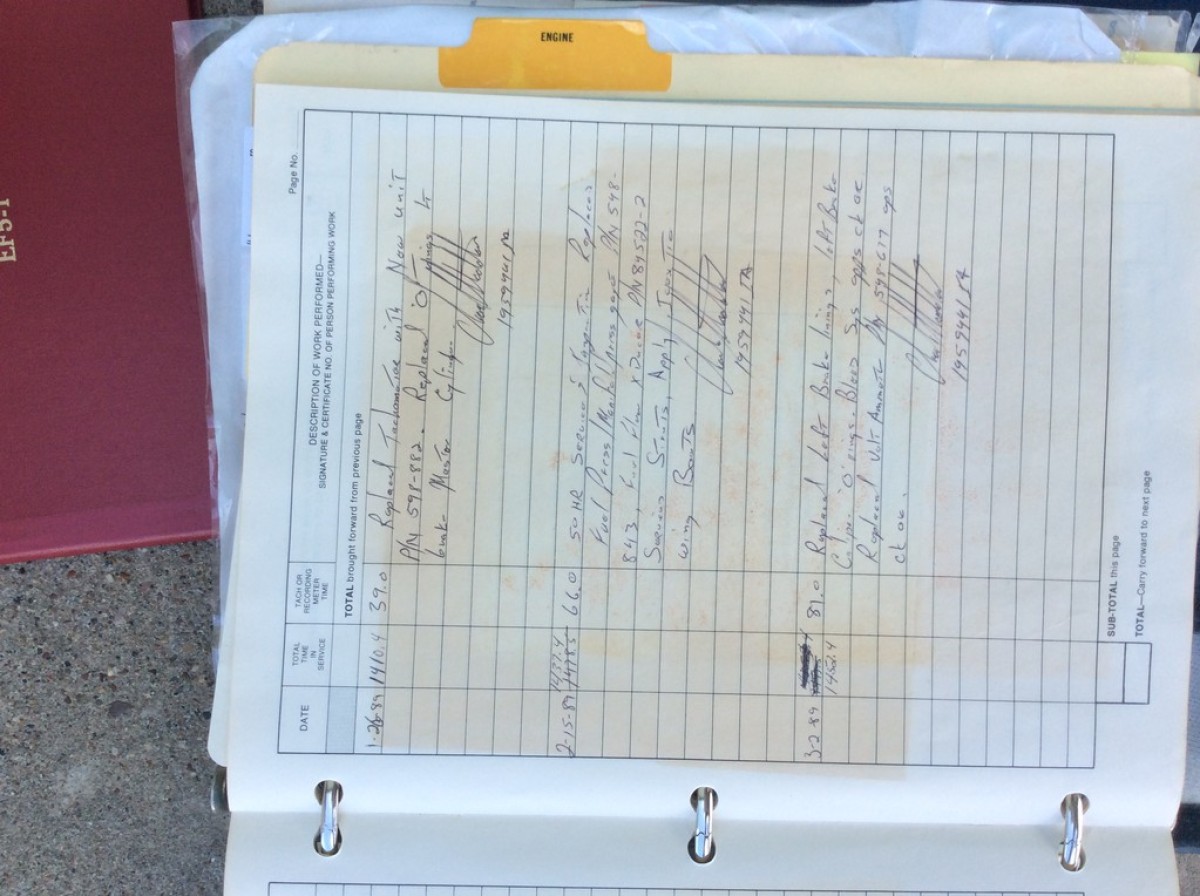 EF5-1
ENGINE
Page No.
DATE
TOTAL TIME IN SERVICE
TACH OR RECORDING METER TIME
DESCRIPTION OF WORK PERFORMED—
SIGNATURE & CERTIFICATE NO. OF PERSON PERFORMING WORK
TOTAL brought forward from previous page
1-26-89 1410.4 39.0 Replaced Tachometer with New unit
P/N 598-882. Replaced "O" rings Lt
brake Master Cylinder
1959441 PA
1437.4
2-15-89 66.0 50 HR Service Replaced
Fuel Press/Manifold press gage P/N 548-
843, Fuel Flow Xducer P/N 84522-2
Service Struts, Apply Type
wing Boots
1959441
3-2-89 81.0 Replaced Left Brake linings, left Brake
1452.4 Caliper 'O' rings. Bleed Sys ck ok
Replaced Volt Ammeter P/N 598-617 ops
ck ok.
1959441
SUB-TOTAL this page
TOTAL—Carry forward to next page